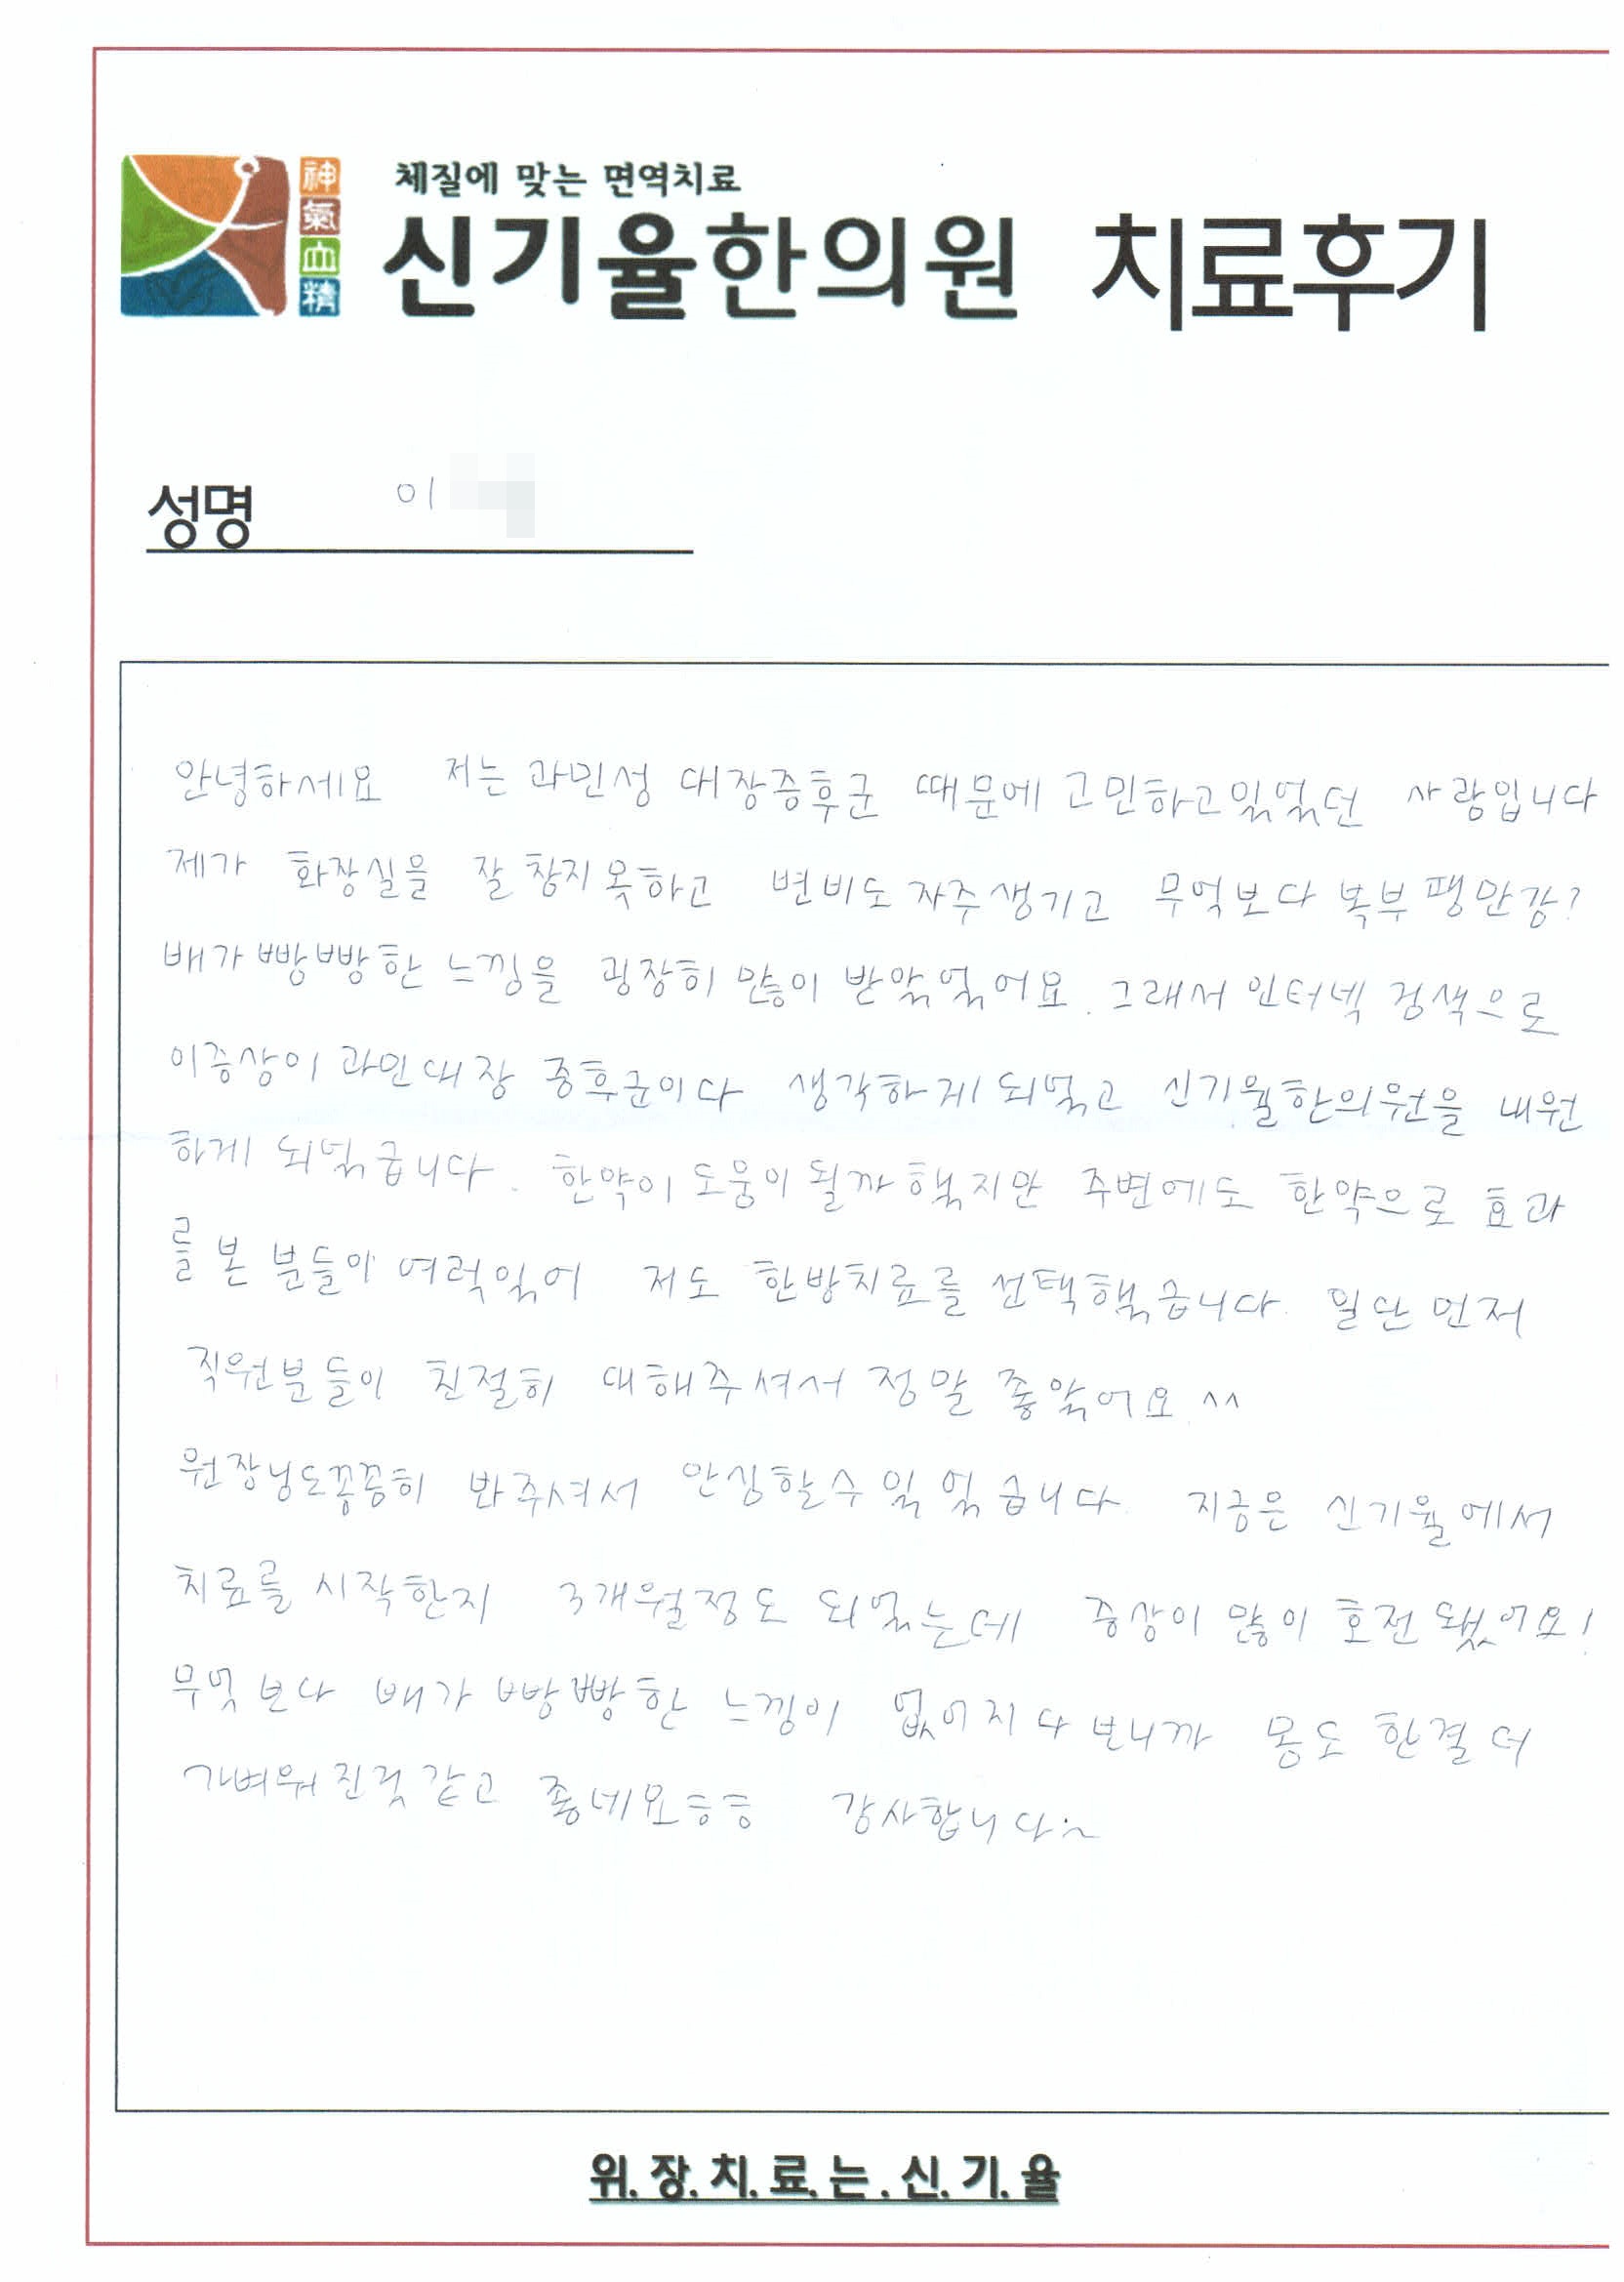 神
氣
血
精
체질에 맞는 면역치료
신기율한의원 치료후기
성명 이
안녕하세요 저는 과민성 대장증후군 때문에 고민하고있었던 사람입니다
제가 화장실을 잘 참지 못하고 변비도 자주생기고 무엇보다 복부 팽만감?
배가빵빵한 느낌을 굉장히 많이 받았었어요. 그래서 인터넷 검색으로
이증상이 과민대장 증후군이다 생각하게되었고 신기율한의원을 내원
하게 되었습니다. 한약이 도움이 될까 했지만 주변에도 한약으로 효과
를 본 분들이 여럿있어 저도 한방치료를 선택했습니다. 일단 먼저
직원분들이 친절히 대해주셔서 정말 좋았어요.^^
원장님도꼼꼼히 봐주셔서 안심할수있었습니다. 지금은 신기율에서
치료를 시작한지 3개월정도 되었는데 증상이 많이 호전 됐어요!
무엇보다 배가 빵빵한 느낌이 없어지다보니까 몸도 한결 더
가벼워진것같고 좋네요ㅎㅎ 감사합니다:~
위.장.치.료.는.신.기.율